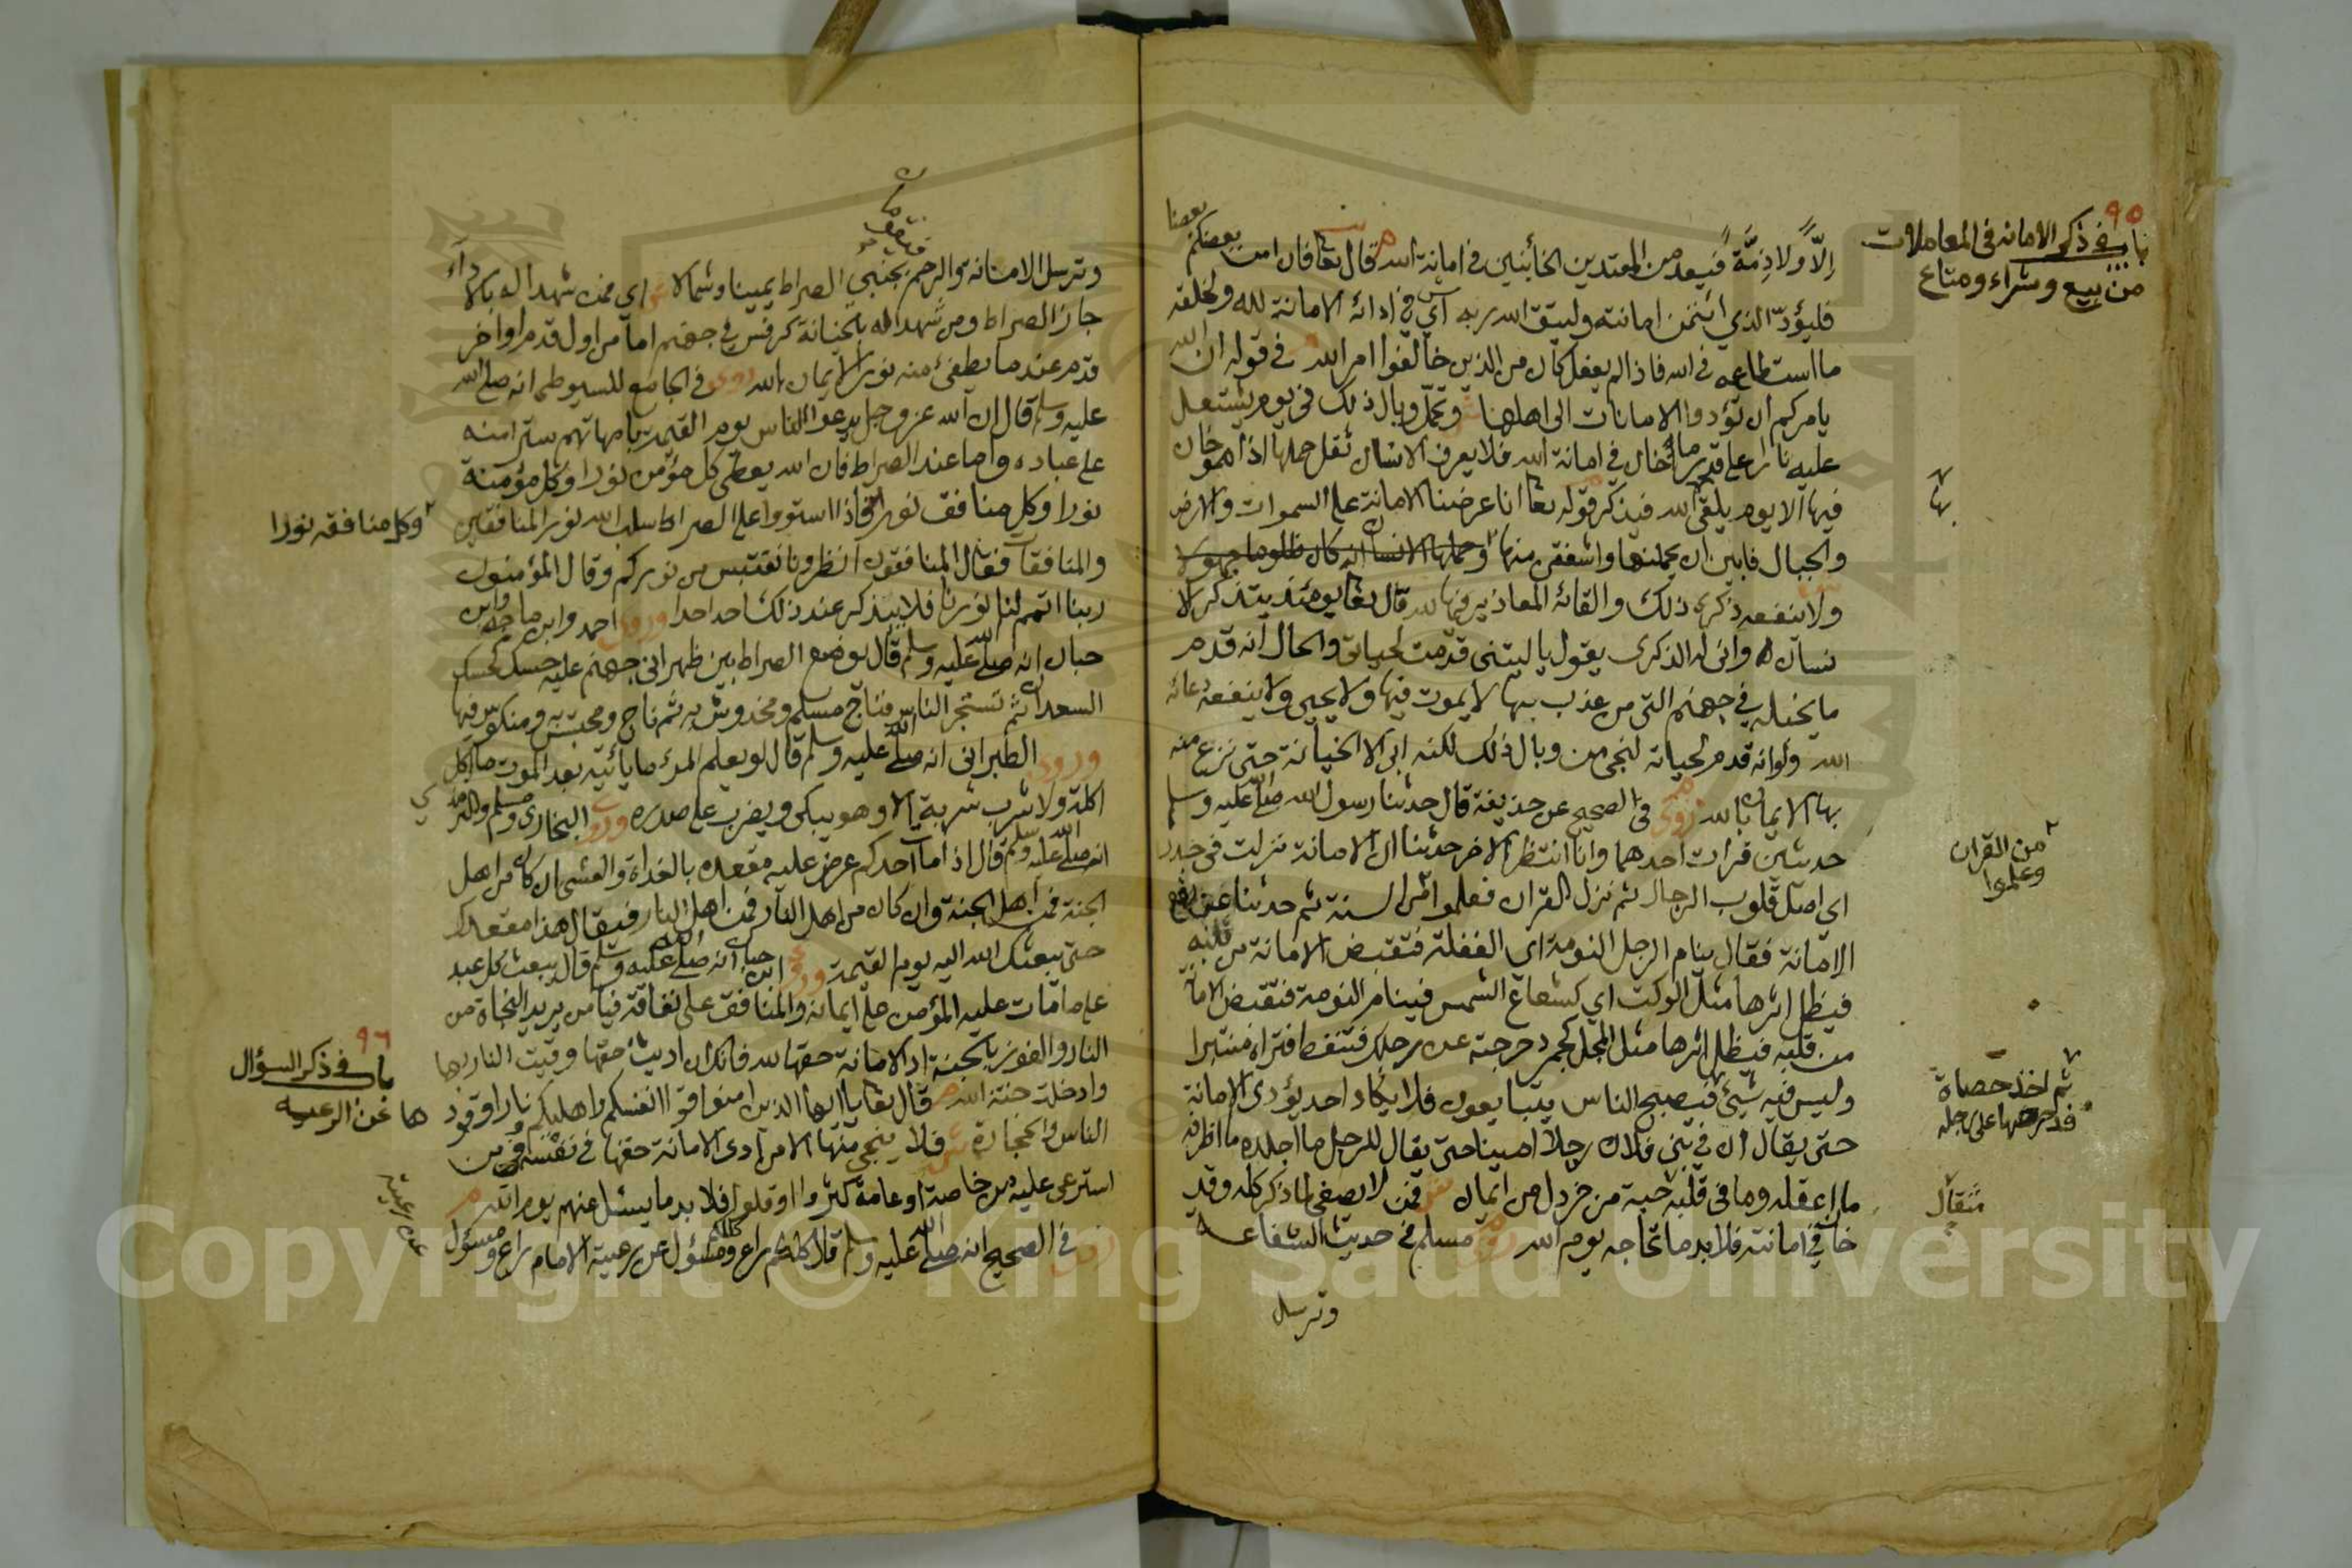 ٩٥
باب في ذكر الامانه في المعاملات
من بيع وشراء ومتاع
إلاّ ولا ذِمَّةً فيعد من المعتدين الخائنين في امانة الله قال تعا فان امن بعضكم بعضا
فليؤدّ الذي ائتمن امانته وليتق الله ربه اي في ادائه الامانة لله ولخلقه
ما استطاعه في الله فاذا لم يفعل كان من الذين خالفوا امر الله في قوله ان الله
يامركم ان تؤدوا الامانات الى اهلها وتحمل وبال ذلك في يوم يشتعل
عليه نارا على قدر ما خان في امانة الله فلا يعرف الانسان ثقل حملها اذا هو خان
فيها الا يوم يلقى الله فيذكر قوله تعا انا عرضنا الامانة على السموات والارض
والجبال فابين ان يحملنها واشفقن منها وحملها الانسان انه كان ظلوما جهولا
بها
ولا ينفعه ذكرى ذلك والقائه المعاذير فيها لله قال تعا يومئذ يتذكر الا
نسان وانى له الذكرى يقول يا ليتنى قدمت لحياتى والحال انه قدم
ما يخله في جهنم التى من عذب بها لا يموت فيها ولا يحيى ولا ينفعه دعائه
الله ولو انه قدم لحياته لنجى من وبال ذلك لكنه ابى الا الخيانة حتى نزع منه
بها الايمان بالله روى في الصحيح عن حذيفة قال حدثنا رسول الله صلى الله عليه وسلم
حديثين قد رات احدهما وانا انتظر الاخر حدثنا ان الامانة نزلت في جذر
من القران
وعلموا
اي اصل قلوب الرجال ثم نزل القران فعلموا من السنة ثم حدثنا عن رفع
الامانة فقال ينام الرجل النومة اى الغفلة فتقبض الامانة من قلبه
فيظل اثرها مثل الوكت اي كشعاع الشمس فينام النومة فتقبض الامانة
من قلبه فيظل اثرها مثل المجل كجمر دحرجته على رجلك فتنفط فتراه منتبرا
ثم اخذ حصاة
فدحرجها على رجله
وليس فيه شيئ فيصبح الناس يتبايعون فلا يكاد احد يؤدى الامانة
حتى يقال ان في بني فلان رجلا امينا حتى يقال للرجل ما اجلده ما اظرفه
ما اعقله وما فى قلبه حبة من خردل من ايمان فمن لا يصغى لما ذكر كله وقد
مثقال
خان في امانته فلا بد ما تحاجه يوم الله روى مسلم في حديث الشفاعة
وترسل
وترسل الامانة والرحم فتقومان بجنبي الصراط يمينا وشمالا اي فمن شهدا له بالاداء
جاز الصراط ومن شهدا له بالخيانة كرفس في جهنم اما من اول قدم او اخر
قدم عندما يطفئ منه نور الايمان بالله روى في الجامع للسيوطى انه صلى الله
عليه وسلم قال ان الله عز وجل يدعوا الناس يوم القيمة بامهاتهم سترا منه
على عباده واما عند الصراط فان الله يعطى كل مؤمن نورا وكل مؤمنة
نورا وكل منافق نورا فاذا استووا على الصراط سلب الله نور المنافقين
وكل منافقه نورا
والمنافقات فقال المنافقون انظرونا نقتبس من نوركم وقال المؤمنون
ربنا اتمم لنا نورنا فلا يتذكر عند ذلك احد احدا وروى احمد وابن ماجه وابن
حبان انه صلى الله عليه وسلم قال يوضع الصراط بين ظهرانى جهنم عليه حسك كحسك
السعدان ثم تستجز الناس فناج مسلم ومخدوش به ثم ناج ومحتبس به ومنكوس فيها
وروى الطبرانى انه صلى الله عليه وسلم قال لو يعلم المرء ما يأتيه بعد الموت ما اكل
اكلة ولا شرب شربة الا وهو يبكى ويضرب على صدره وروى البخارى ومسلم والترمذي
انه صلى الله عليه وسلم قال اذا مات احدكم عرض عليه مقعده بالغداة والعشي ان كان من اهل
الجنة فمن اهل الجنة وان كان من اهل النار فمن اهل النار فيقال هذا مقعدك
حتى يبعثك الله اليه يوم القيمة وروى ابن حبان انه صلى الله عليه وسلم قال يبعث كل عبد
على ما مات عليه المؤمن على ايمانه والمنافق على نفاقه فيا من يريد النجاة من
النار والفوز بالجنة اد الامانة حقها لله فانك ان اديت حقها وقيت النار بها
٩٦
باب في ذكر السؤال
عن الرعيه
وادخلت جنة الله قال تعا يا ايها الذين امنوا قوا انفسكم واهليكم نارا وقود
ها
الناس والحجارة فلا ينجى منها الا من ادى الامانة حقها في نفسه وفي من
استرعى عليه من خاصة او عامة كثروا او قلوا فلا بد ما يسئل عنهم يوم الله
روى في الصحيح انه صلى الله عليه وسلم قال كلكم راع وكلكم مسؤل عن رعيته الامام راع ومسؤل
عن رعيته
Copyright © King Saud University